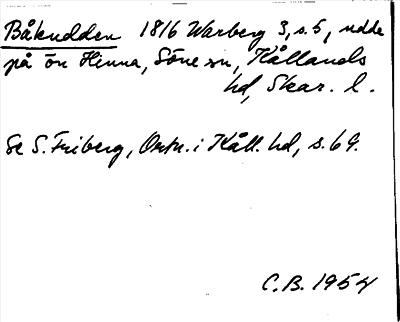 Båkudden 1816 Warberg 3, s. 5, udde
på ön Hinna, Söne sn, Kållands
hd, Skar. l.
Se S. Friberg, Ortn. i Kåll. hd, s. 69.
C.B. 1954